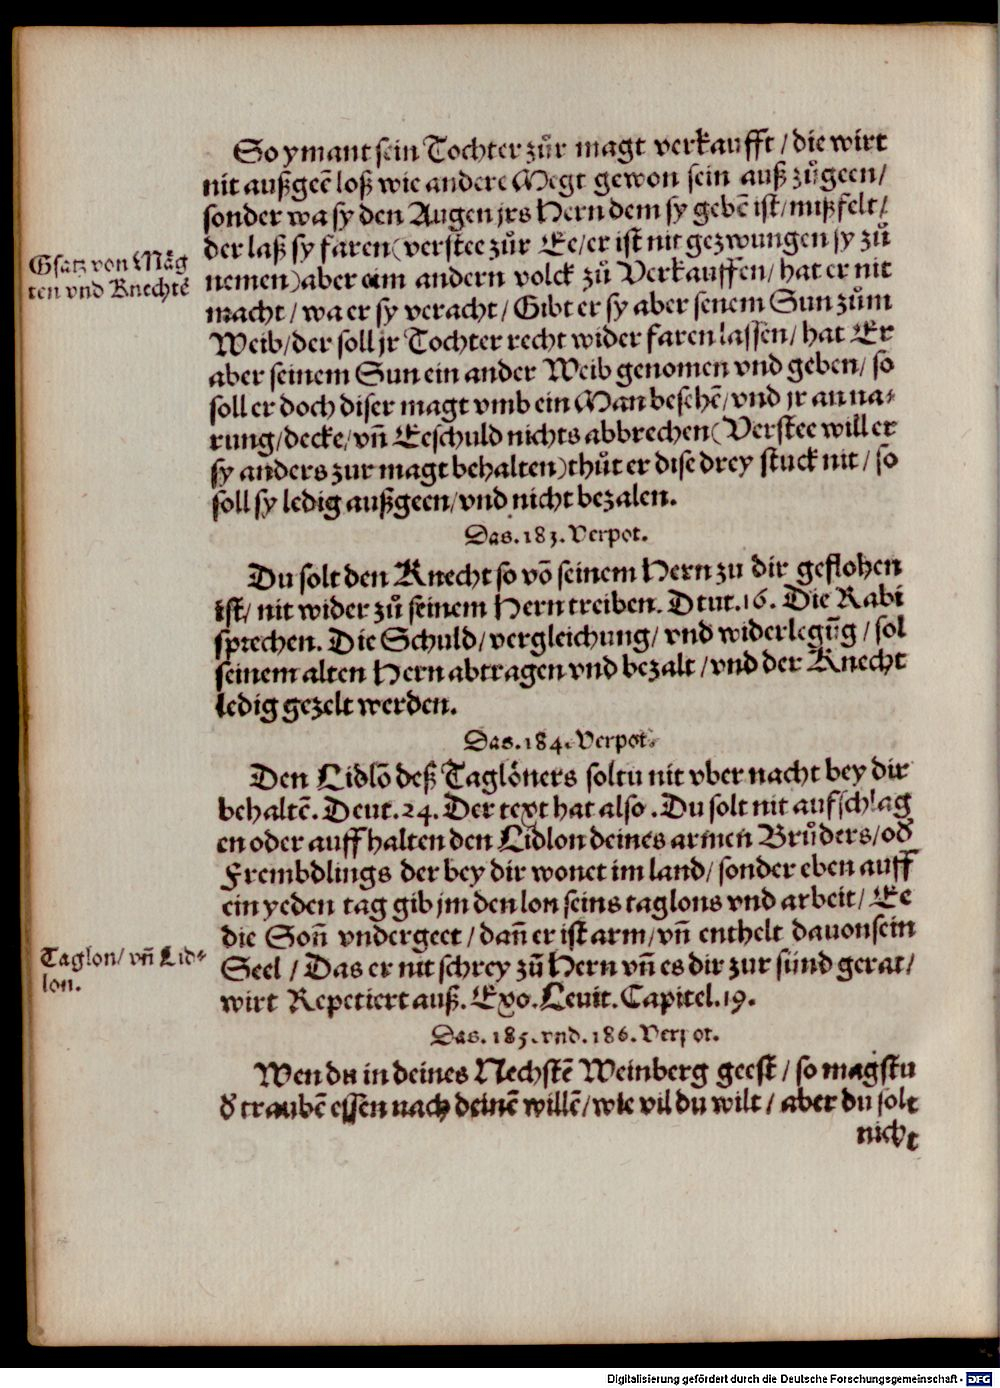 So ymant sein Tochter zůr magt verkaufft / die wirt
nit außgeē loß wie andere Megt gewon sein auß zůgeen /
sonder wa sy den Augen jrs Hern dem sy gebē ist / mißfelt /
Gsatz von Mäg
ten vnd Knechtē
der laß sy faren (verstee zůr Ee / er ist nit gezwungen sy zů
nemen) aber eim andern volck zů Verkauffen / hat er nit
macht / wa er sy veracht / Gibt er sy aber senem Sun zům
Weib / der soll jr Tochter recht wider faren lassen / hat Er
aber seinem Sun ein ander Weib genomen vnd geben / so
soll er doch diser magt vmb ein Man besehē / vnd jr an na⸗
rung / decke / vn̄ Eeschuld nichts abbrechen (Verstee will er
sy anders zur magt behalten) thůt er dise drey stuck nit / so
soll sy ledig außgeen / vnd nicht bezalen.
Das. 183. Verpot.
Du solt den Knecht so vō seinem Hern zu dir geflohen
ist / nit wider zů seinem Hern treiben. Deut. 16. Die Rabi
sprechen. Die Schuld / vergleichung / vnd widerlegūg / sol
seinem alten Hern abtragen vnd bezalt / vnd der Knecht
ledig gezelt werden.
Das. 184. Verpot.
Den Lidlō deß Taglöners soltu nit vber nacht bey dir
behaltē. Deut. 24. Der text hat also. Du solt nit aufschlag
en oder auff halten den Lidlon deines armen Brůders / od
Frembdlings der bey dir wonet im land / sonder eben auff
ein yeden tag gib jm den lon seins taglons vnd arbeit / Ee
die Son̄ vndergeet / dan̄ er ist arm / vn̄ enthelt dauon sein
Taglon / vn̄ Lid⸗
lon.
Seel / Das er nit schrey zū Hern vn̄ es dir zur sünd gerat /
wirt Repetiert auß. Exo. Leuit. Capitel. 19.
Das. 185. vnd. 186. Verpot.
Wen du in deines Nechstē Weinberg geest / so magstu
đ traubē essen nach deinē willē / wie vil du wilt / aber du solt
nicht
Digitalisierung gefördert durch die Deutsche Forschungsgemeinschaft - DFG